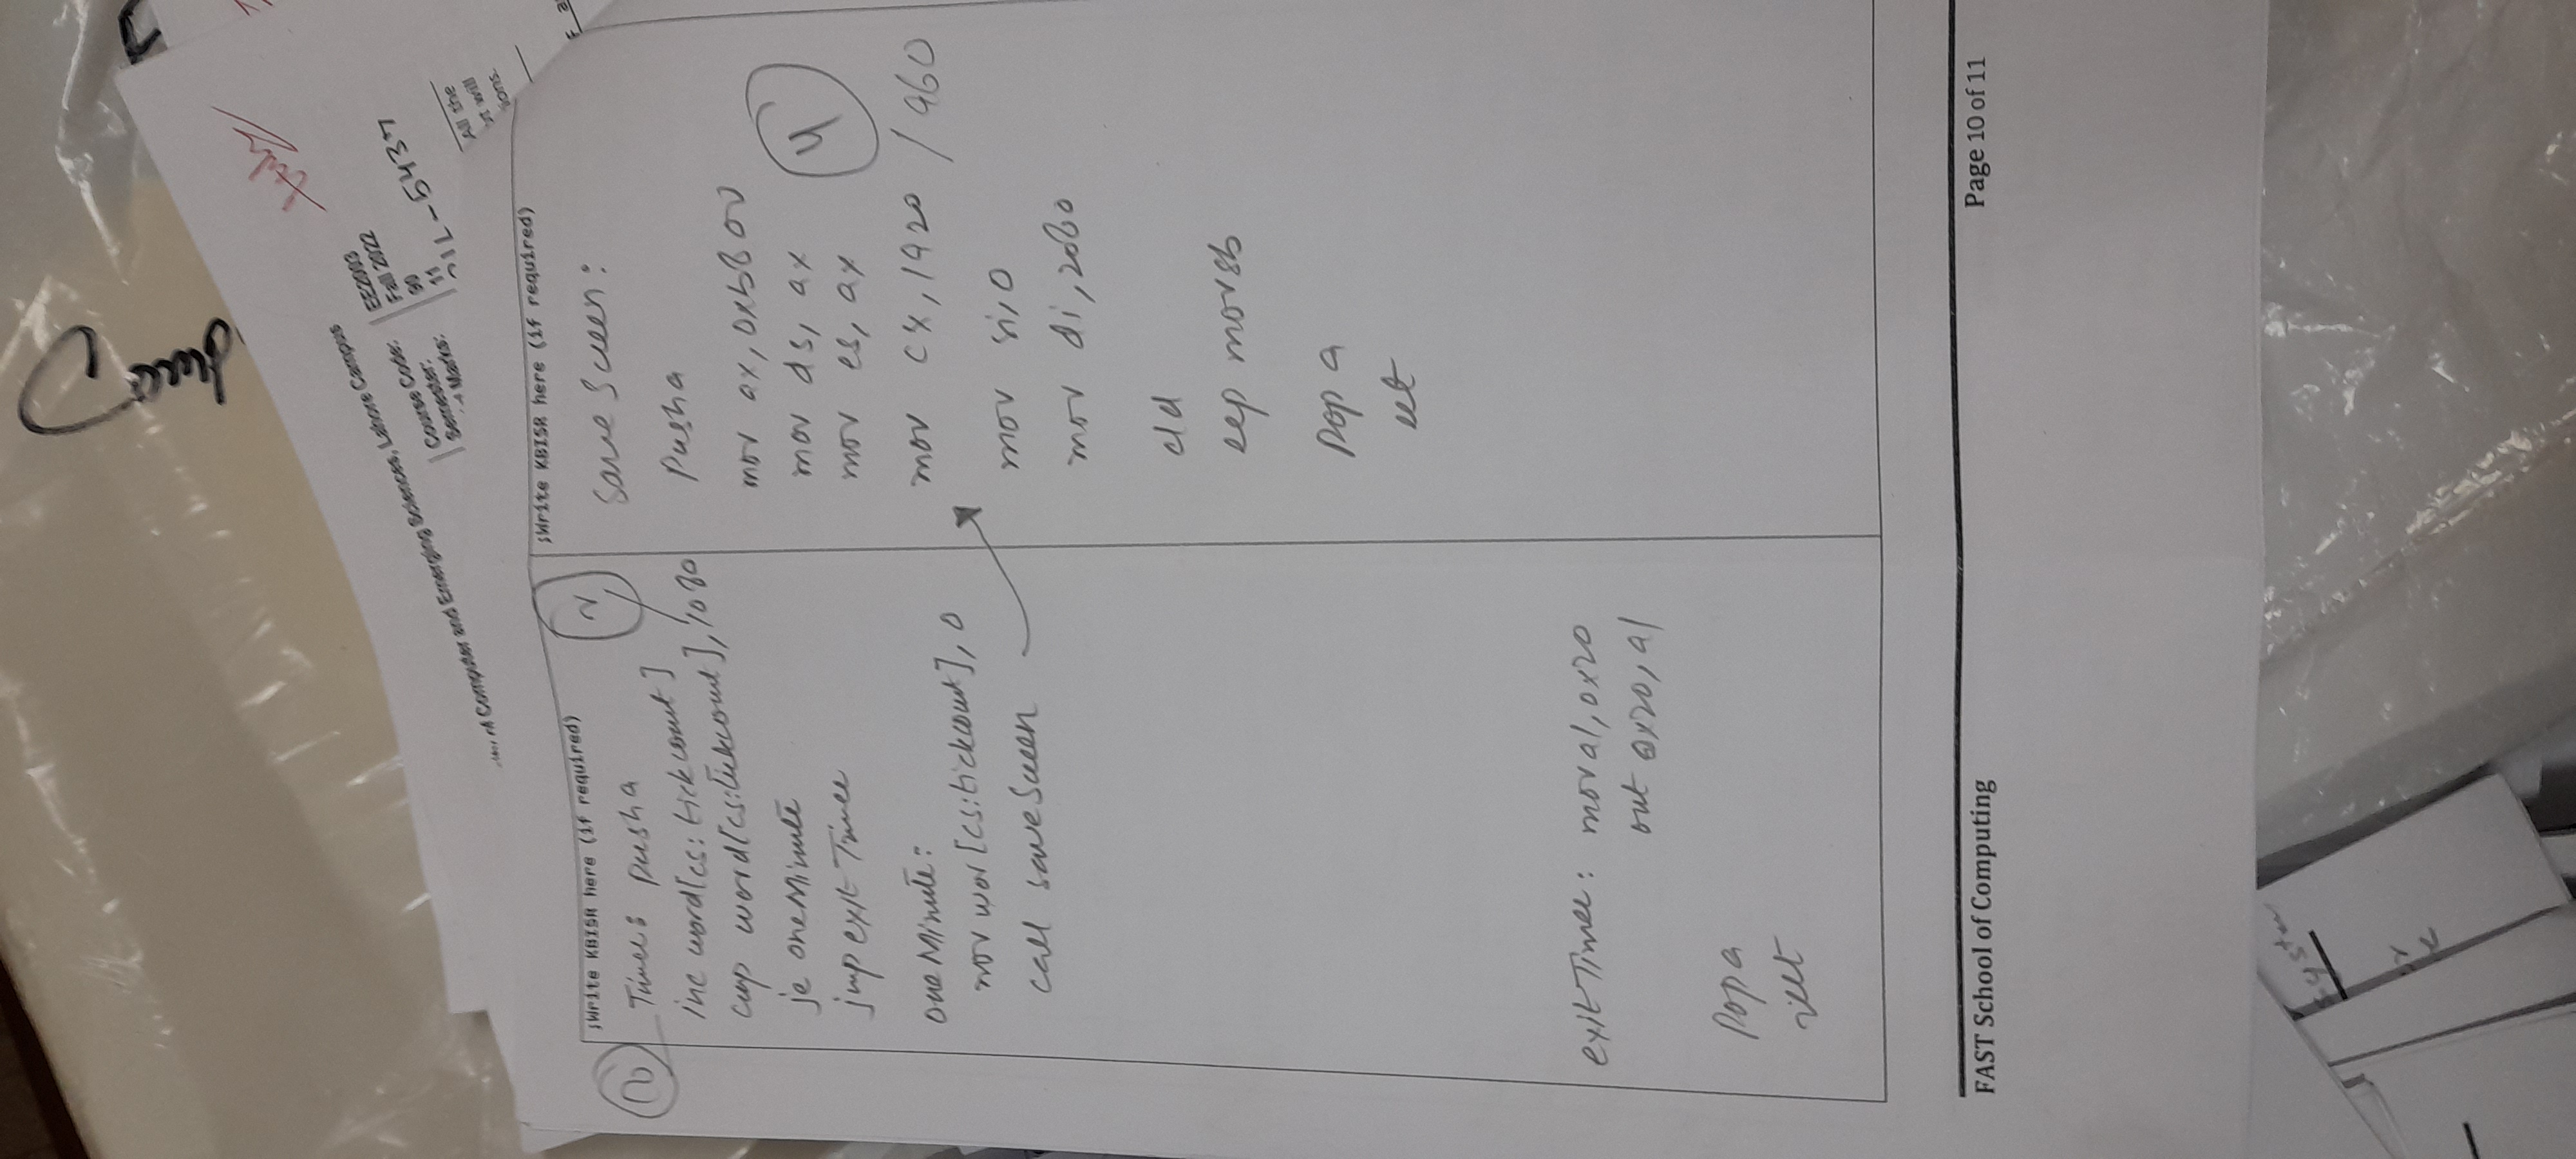 of Computer and Emerging Sciences, Lahore Campus
Course Code:
EE2003
Semester:
Fall 2022
Marks:
90
11
21L-5437
All the
will
ions.
;Write KBISR here (if required)
2
Timer: pusha
inc word[cs:tickcount]
cmp word[cs:tickcount], 1080
je oneMinute
jmp exitTimer
oneMinute:
mov wor[cs:tickcount], 0
call saveScreen
exitTimer: mov al, 0x20
out 0x20, al
Popa
iret
;Write KBISR here (if required)
SaveScreen:
Pusha
mov ax, 0xb800
mov ds, ax
mov es, ax
4
mov cx, 1920 / 960
mov si, 0
mov di, 2080
cld
rep movsb
Popa
ret
FAST School of Computing
Page 10 of 11